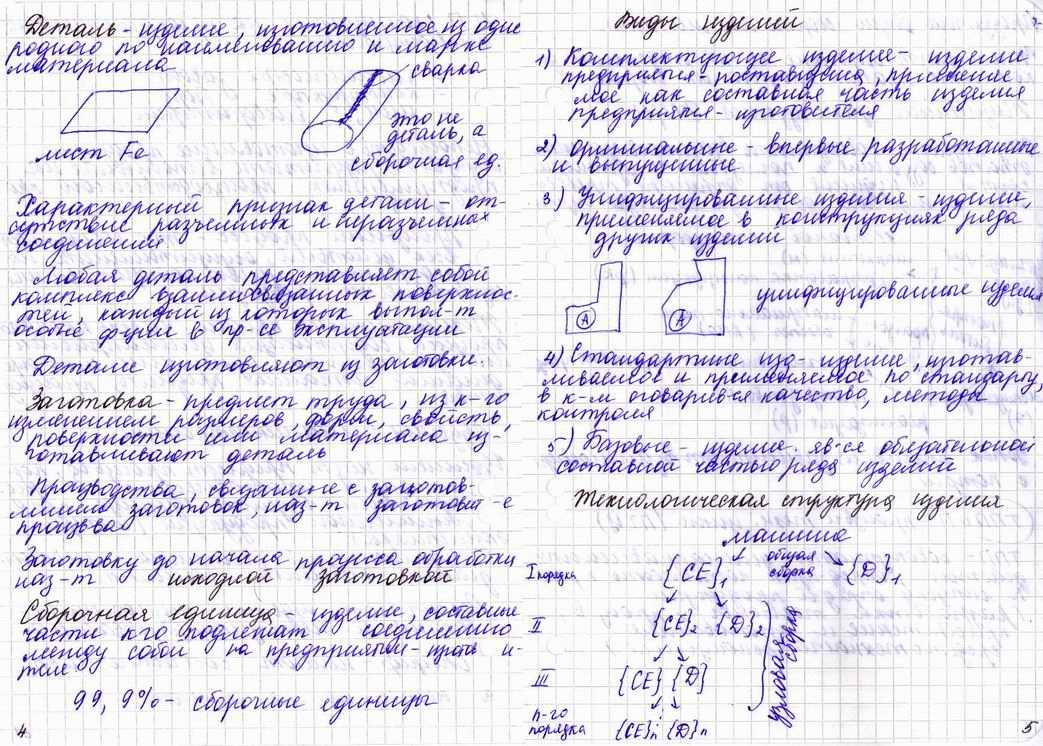 Деталь - изделие, изготовленное из одно
родного по наименованию и марке
материала
сварка
это не
деталь, а
сборочная ед.
лист Fe
Характерный признак детали - от-
сутствие разъемных и неразъемных
соединений
Любая деталь представляет собой
комплекс взаимосвязанных поверхнос-
тей, каждый из которых выпол-т
особые функ в пр-се эксплуатации
Детали изготовляют из заготовки.
Заготовка - предмет труда, из к-го
изменением размеров, форм, свойств,
поверхности или материала из-
готавливают деталь
Производства, связанные с заготов-
лением заготовок, наз-т заготовит-е
произв-ва
Заготовку до начала процесса обработки
наз-т исходной заготовкой
Сборочная единица - изделие, составные
части к-го подлежат соединению
между собой на предприятии-изготовите-
теле
99,9% - сборочные единицы
4
Виды изделий
1) Комплектующее изделие - изделие
предприятия-поставщика, применяе
мое как составная часть изделия
предприятия-изготовителя
2) оригинальные - впервые разработанные
и выпущенные
3) Унифицированные изделия - изделие,
применяемое в конструкциях ряда
других изделий
А А унифицированные изделия
4) Стандартные изд - изделие, изготав-
ливаемое и применяемое по стандарту,
в к-м оговарив-ся качество, методы
контроля
5) Базовые - изделие яв-ся обязательной
составной частью ряда изделий
Технологическая структура изделия
машина
общая
сборка
I порядка {СЕ}1 {D}1
II {СЕ}2 {D}2
III {СЕ} {D}
n-го
порядка {СЕ}n {D}n
Узловая
сборка
5